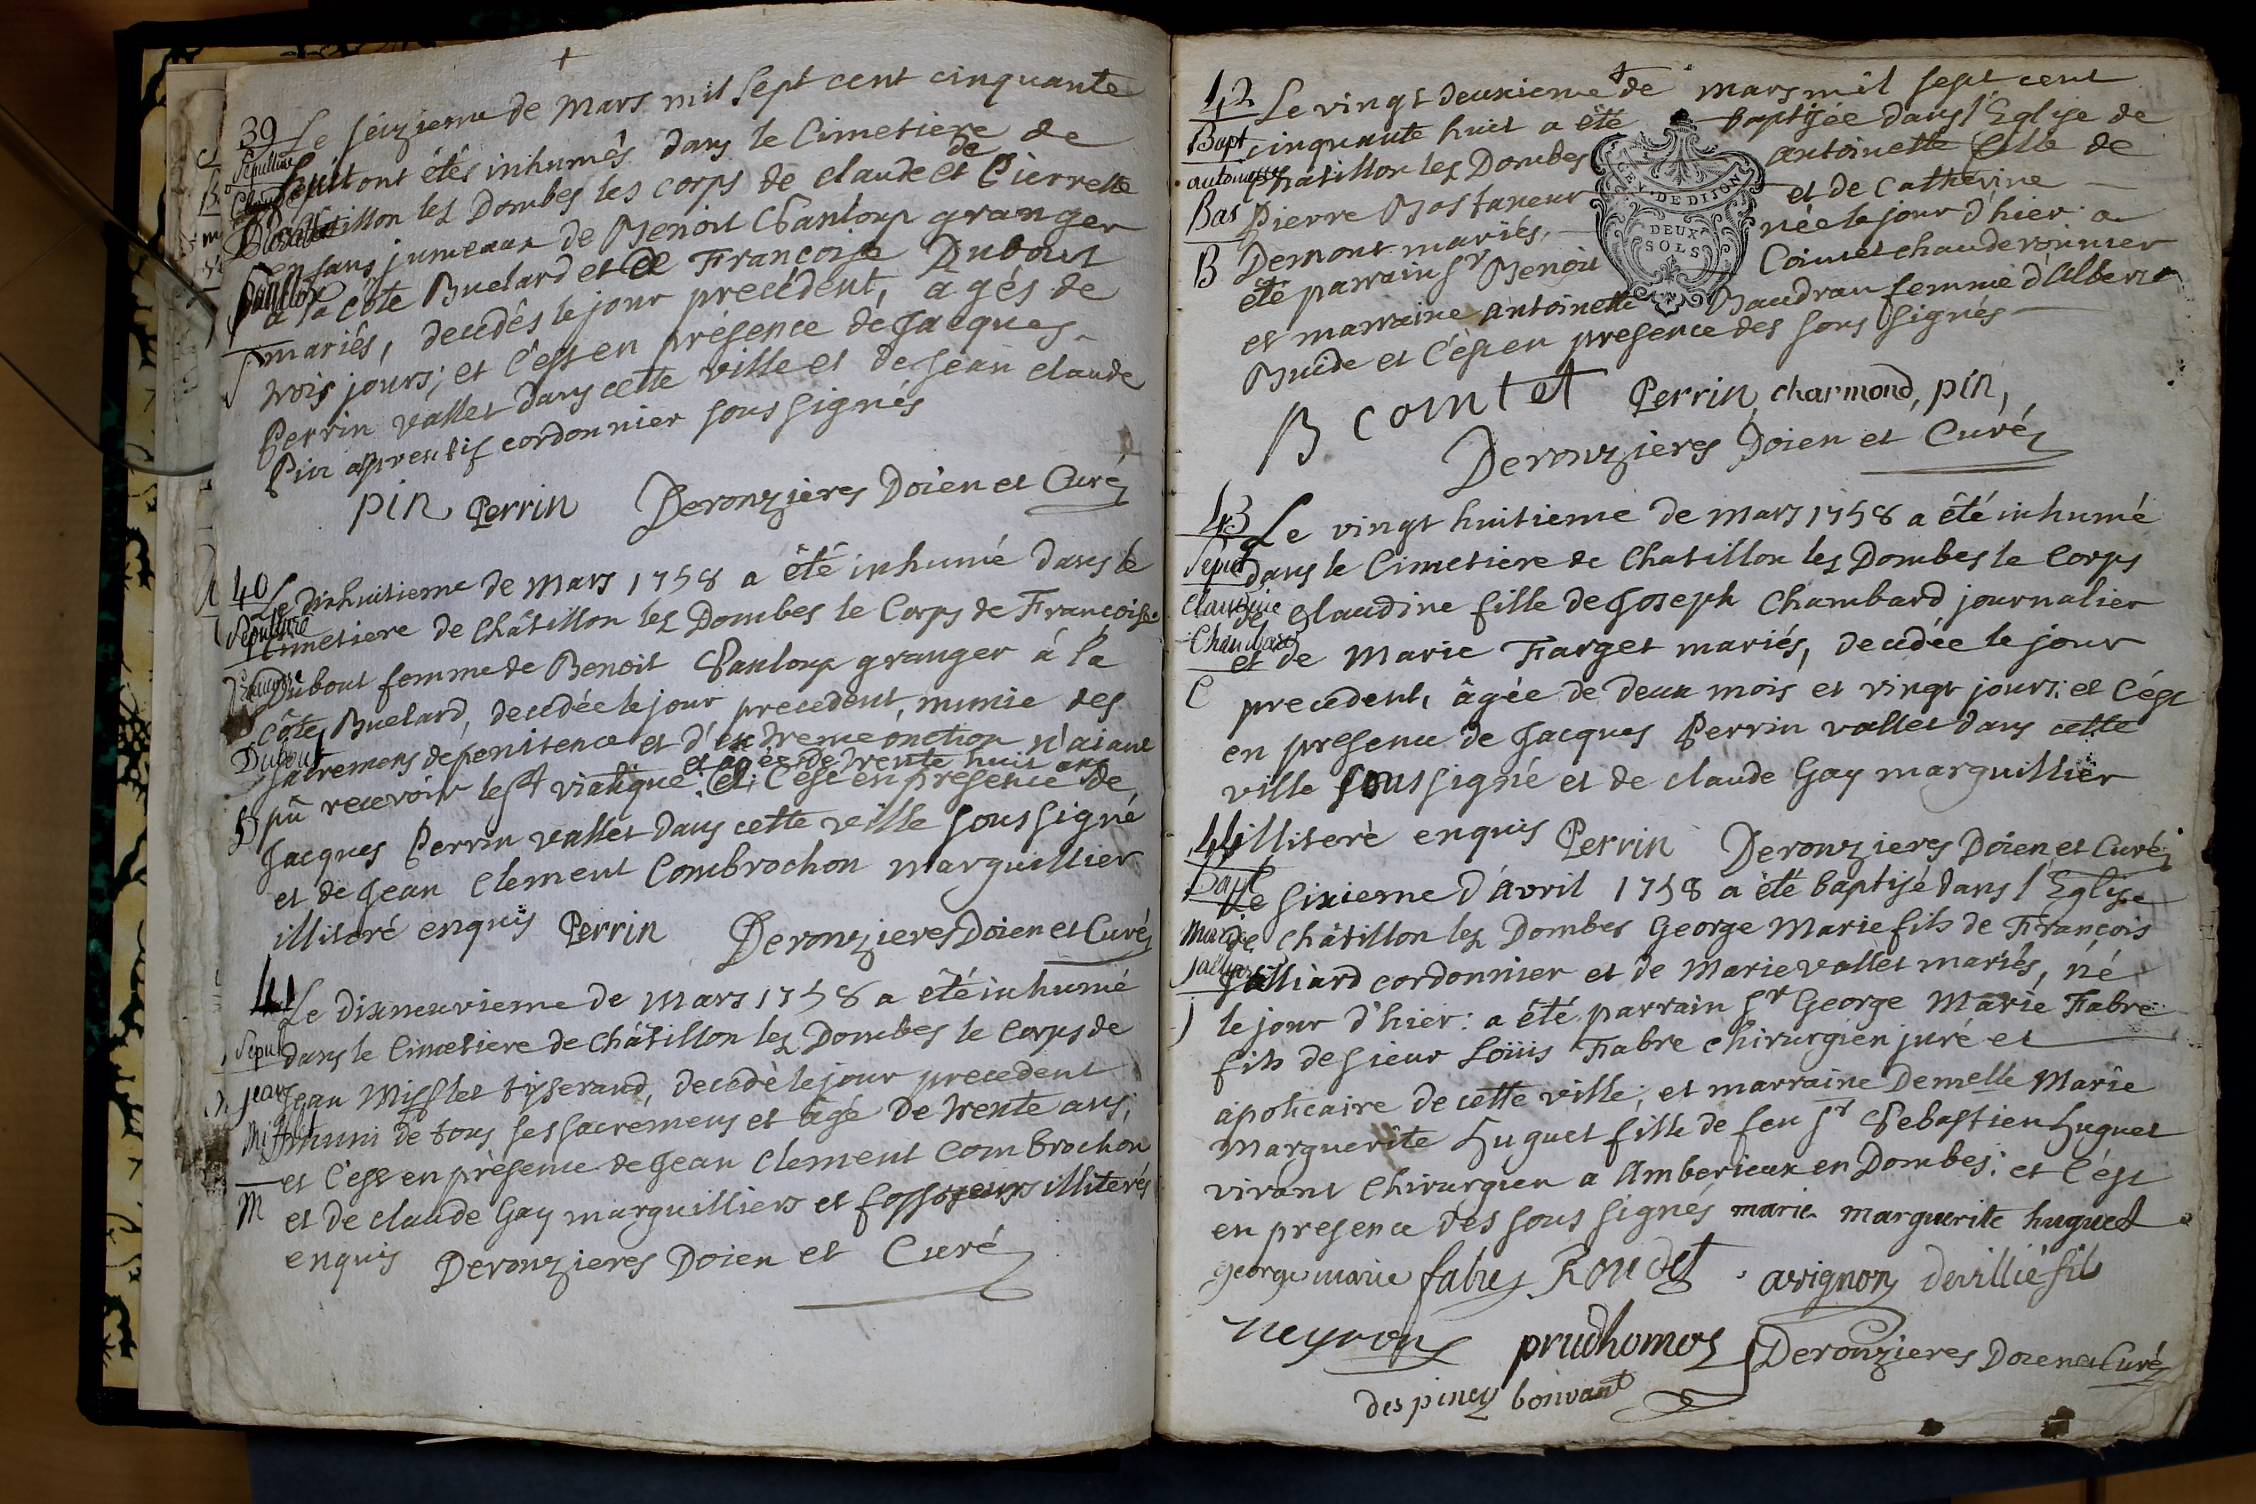 39
Sepulture
Le séizieme de Mars mil sept cent cinquante
huit ont étés inhumés dans le Cimetiere de
Châtillon les Dombes les corps de claude et de Pierrette
enfans jumeaux de Benoit Chanloup granger
à la côte Buelard et de Françoise Dubout
mariés, decedés le jour precedent, agés de
trois jours; et c'est en présence de Jacques
Perrin vallet dans cette ville et de Jean claude
Pin apprentif cordonnier soussignés
pin Perrin Deronzieres Doien et Curé
40
Sepulture
Françoise
Dubout
D
Le dixhuitieme de Mars 1758 a été inhumé dans le
Cimetiere de Châtillon les Dombes le Corps de Françoise
Dubout femme de Benoit Chanloup granger à la
côte Buelard, decedée le jour precedent, munie des
sacremens de penitence et d'extreme onction n'aiant
pû recevoir le st viatique et agée de trente huit ans
et c'est en presence de
Jacques Perrin vallet dans cette ville soussigné
et de Jean Clement Combrochon marguillier
illiteré enquis Perrin Deronzieres Doien et Curé
41
Sepult
jean
M
Le dixneuvieme de Mars 1758 a été inhumé
dans le Cimetiere de Châtillon les Dombes le Corps de
Jean Mifflet tisserand, decedé le jour precedent
muni de tous ses sacremens et âgé de trente ans;
et c'est en présence de Jean Clement Combrochon
et de claude Gay marguilliers et fossoyeurs illiterés
enquis Deronzieres Doien et Curé
42
Bapt
antoinette
Bas
B
Le vingt deuxieme de mars mil sept cent
cinquante huit a été baptisée dans l'Eglise de
Châtillon les Dombes antoinette fille de
Pierre Bastaneur et de Catherine
Demont mariés, née le jour d'hier: a
été parrain sr Benoit Cointet chauderonnier
et marraine antoinette Baudran femme d'Albert
Buide et c'est en presence des sous signés
GEN. DE DIJON
DEUX
SOLS
B comtet Perrin, charmond, pin,
Deronzieres Doien et Curé
43
Sepult
Claudine
Chambard
C
Le vingt huitieme de Mars 1758 a été inhumé
dans le Cimetiere de Chatillon les Dombes le Corps
de Claudine fille de Joseph Chambard journalier
et de Marie Farget mariés, decedée le jour
precedent, âgée de deux mois et vingt jours: et c'est
en presence de Jacques Perrin vallet dans cette
ville soussigné et de claude Gay marguillier
illiteré enquis Perrin Deronzieres Doien et Curé
44
Bapt
j
Le sixieme d'avril 1758 a été baptisé dans l'Eglise
de Châtillon les Dombes George Marie fils de François
Jalliard cordonnier et de Marie vallet mariés, né
le jour d'hier: a été parrain sr George Marie Fabre
fils de sieur Loüis Fabre chirurgien juré et
apoticaire de cette ville; et marraine Demelle Marie
Marguerite Huguet fille de feu sr Sebastien Huguet
vivant Chirurgien a Amberieux en Dombes: et c'est
en presence des sous signés marie marguerite huguet
george marie fabre Roudet avignon devillié fils
neyron prudhomes Deronzieres Doien et Curé
des piney bonvant